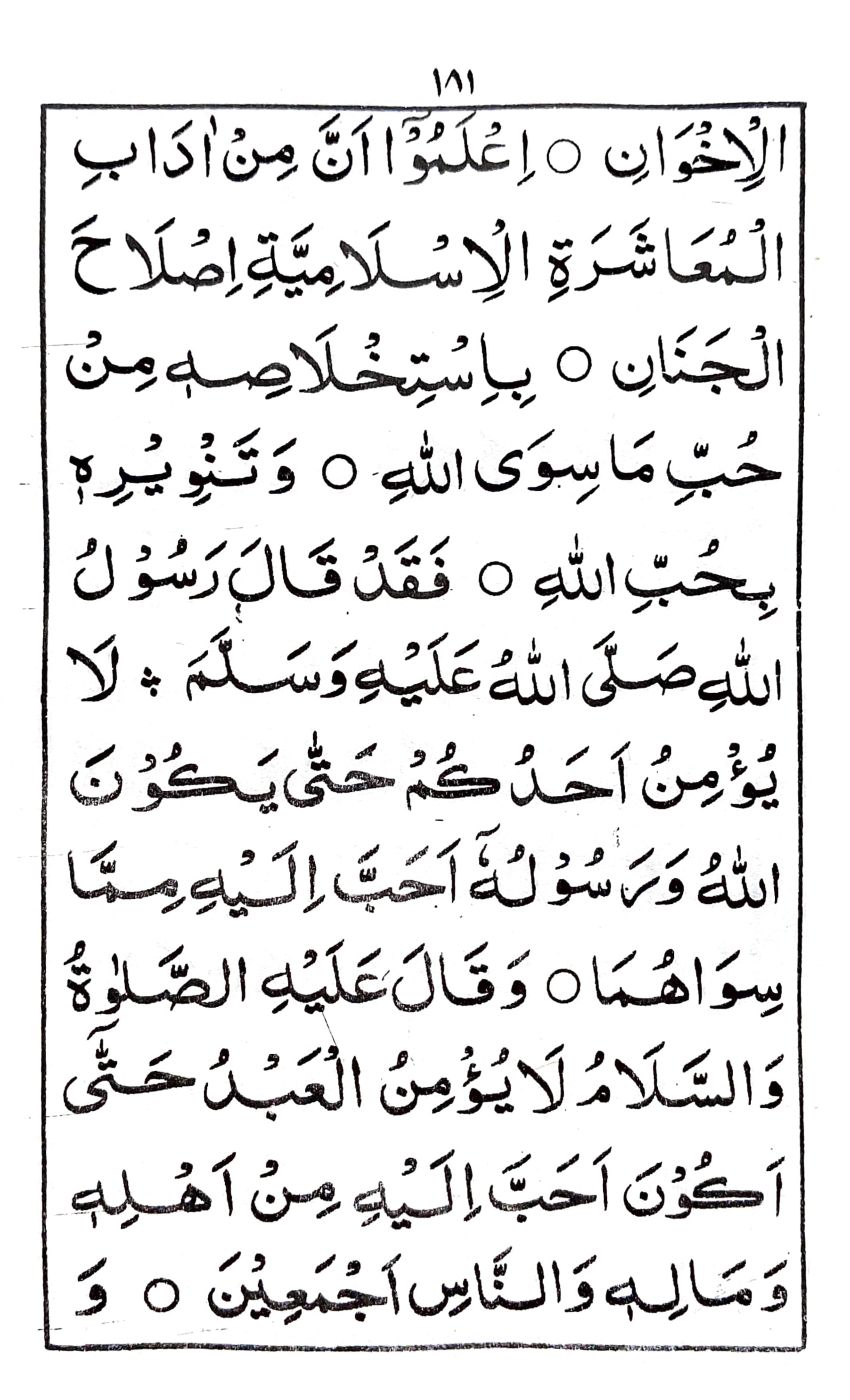 ١٨١
الْاِخْوَانِ ○ اِعْلَمُوْٓا اَنَّ مِنْ اٰدَابِ
الْمُعَاشَرَةِ الْاِسْلَامِيَّةِ اِصْلَاحَ
الْجَنَانِ ○ بِاِسْتِخْلَاصِهٖ مِنْ
حُبِّ مَا سِوَى اللهِ ○ وَتَنْوِيْرِهٖ
بِحُبِّ اللهِ ○ فَقَدْ قَالَ رَسُوْلُ
اللهِ صَلَّى اللهُ عَلَيْهِ وَسَلَّمَ ؞ لَا
يُؤْمِنُ اَحَدُكُمْ حَتّٰى يَكُوْنَ
اللهُ وَرَسُوْلُهٗٓ اَحَبَّ اِلَيْهِ مِمَّا
سِوَاهُمَا ○ وَقَالَ عَلَيْهِ الصَّلٰوةُ
وَالسَّلَامُ لَا يُؤْمِنُ الْعَبْدُ حَتّٰىٓ
اَكُوْنَ اَحَبَّ اِلَيْهِ مِنْ اَهْلِهٖ
وَمَالِهٖ وَالنَّاسِ اَجْمَعِيْنَ ○ وَ